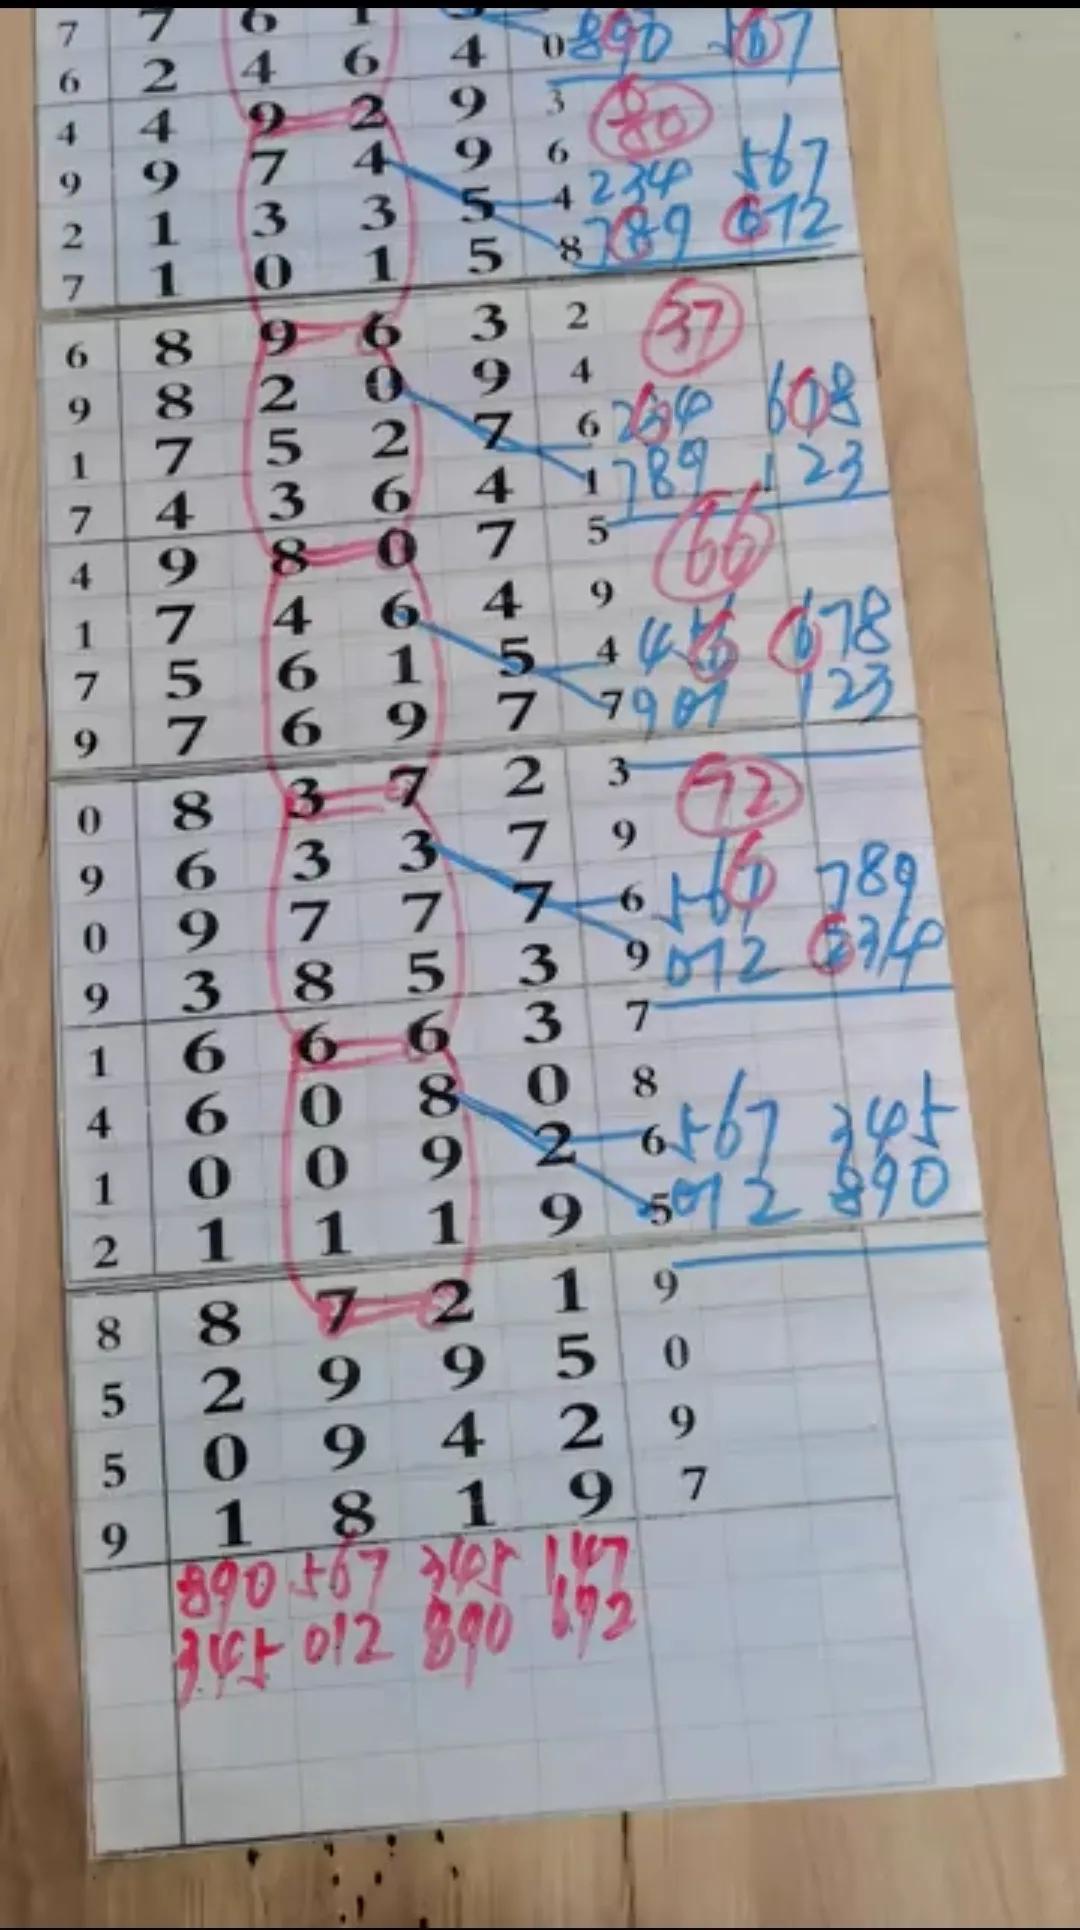 7 7 6 1
6 2 4 6 4 0 890 567
4 4 9 2 9 3 80
9 9 7 4 9 6
2 1 3 3 5 4 234 567
7 1 0 1 5 8 789 012
6 8 9 6 3 2 37
9 8 2 0 9 4
1 7 5 2 7 6 234 678
7 4 3 6 4 1 789 123
4 9 8 0 7 5 66
1 7 4 6 4 9
7 5 6 1 5 4 456 678
9 7 6 9 7 7 901 123
0 8 3 7 2 3 72
9 6 3 3 7 9
0 9 7 7 7 6 567 789
9 3 8 5 3 9 012 234
1 6 6 6 3 7
4 6 0 8 0 8
1 0 0 9 2 6 567 345
2 1 1 1 9 5 012 890
8 8 7 2 1 9
5 2 9 9 5 0
5 0 9 4 2 9
9 1 8 1 9 7
890 567 345 147
345 012 890 692